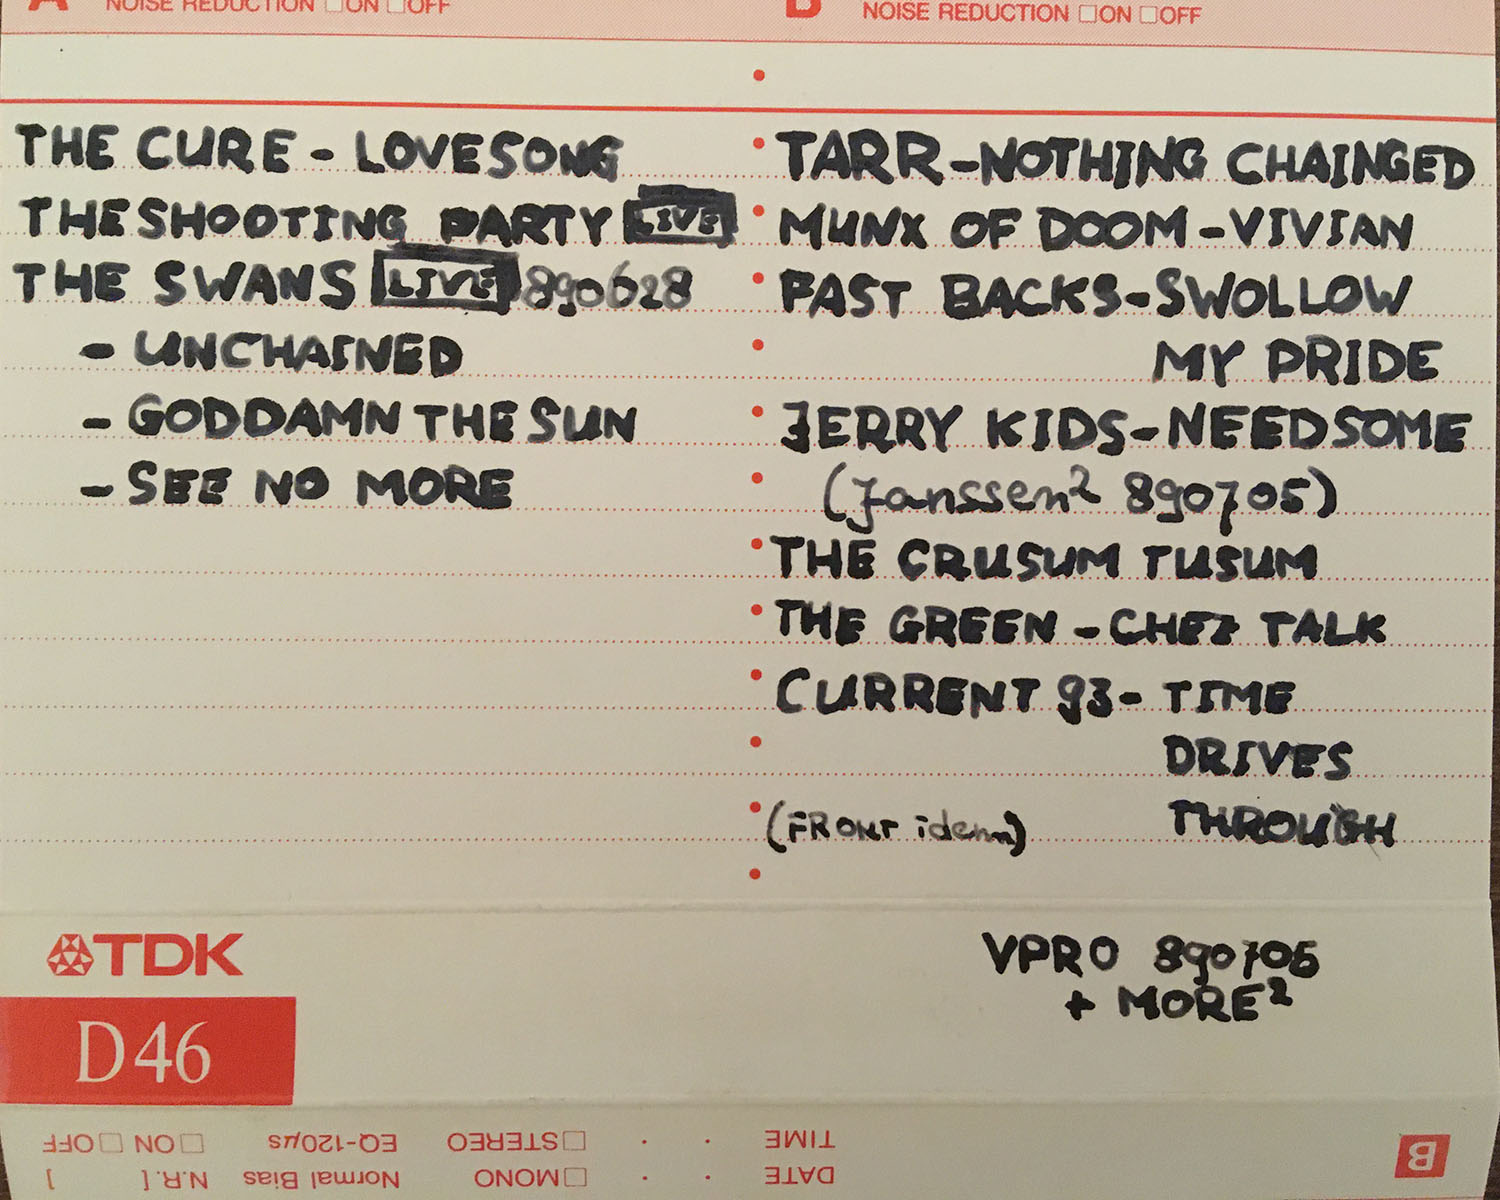 A NOISE REDUCTION □ON □OFF
B NOISE REDUCTION □ON □OFF
THE CURE - LOVESONG
THE SHOOTING PARTY LIVE
THE SWANS LIVE 890628
- UNCHAINED
- GODDAMN THE SUN
- SEE NO MORE
TARR - NOTHING CHAINGED
MUNX OF DOOM - VIVIAN
FAST BACKS - SWOLLOW
MY PRIDE
JERRY KIDS - NEED SOME
(Janssen² 890705)
THE CRUSUM TUSUM
THE GREEN - CHEZ TALK
CURRENT 93 - TIME
DRIVES
(FRONT idem) THROUGH
TDK
D46
VPRO 890705
+ MORE²
B
DATE · · □MONO Normal Bias N.R. [ ]
TIME · · □STEREO EQ-120µs □ON □OFF